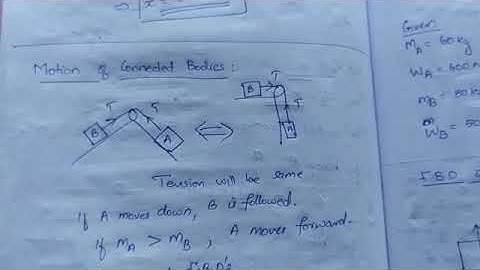 Motion of Connected Bodies :
T
T
B
A
B
T
T
A
Tension will be same
if A moves down, B is followed.
if mA > mB , A moves forward.
F.B.D's
Given
MA = 60kg
WA = 600
mB = 50k
WB = 50
F.B.D